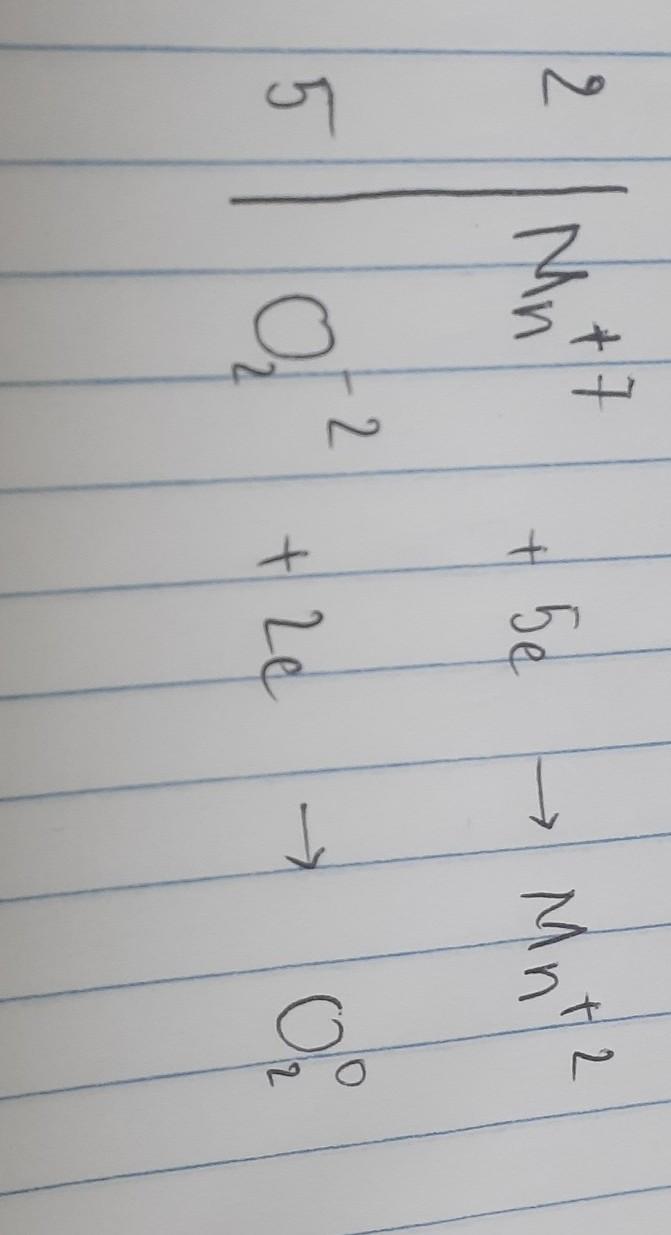 2 | Mn⁺⁷ + 5e → Mn⁺²
5 | O₂⁻² + 2e → O₂⁰